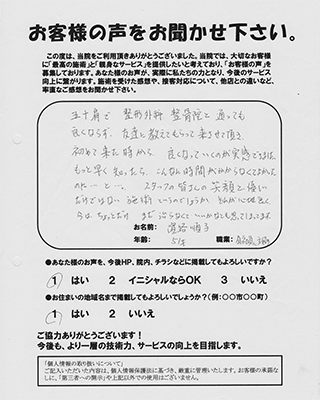 お客様の声をお聞かせ下さい。
この度は、当院をご利用頂きありがとうございました。当院では、大切なお客様
に「最高の施術」と「親身なサービス」を提供したいと考えており、「お客様の声」を
募集しております。あなた様のお声が、実際に私たちの力となり、今後のサービス
向上に繋がります。施術を受けた感想や、接客対応について、他店との違いなど、
率直なご感想をお聞かせ下さい。
五十肩で 整形外科 整骨院と通っても
良くならず、友達に教えてもらって来させて頂き
初めて来た時から、良くなっていくのが実感できました
もっと早く知ったら、こんな時間がかからなくてよかった
のにーと…。スタッフの皆さんの笑顔と優しい
だけではない施術
お名前:
年齢: 51才
職業:
●あなた様のお声を、今後HP、院内、チラシなどに掲載してもよろしいですか?
1 はい 2 イニシャルならOK 3 いいえ
●お住まいの地域名まで掲載してもよろしいでしょうか?(例:〇〇市〇〇町)
1 はい 2 いいえ
ご協力ありがとうございます!
今後も、より一層の技術力、サービスの向上を目指します。
「個人情報の取り扱いについて」
ご記入いただいた内容は、個人情報保護法に基づき、厳重に管理いたします。お客様の承諾な
しに、「第三者への開示」や上記以外での使用はございません。